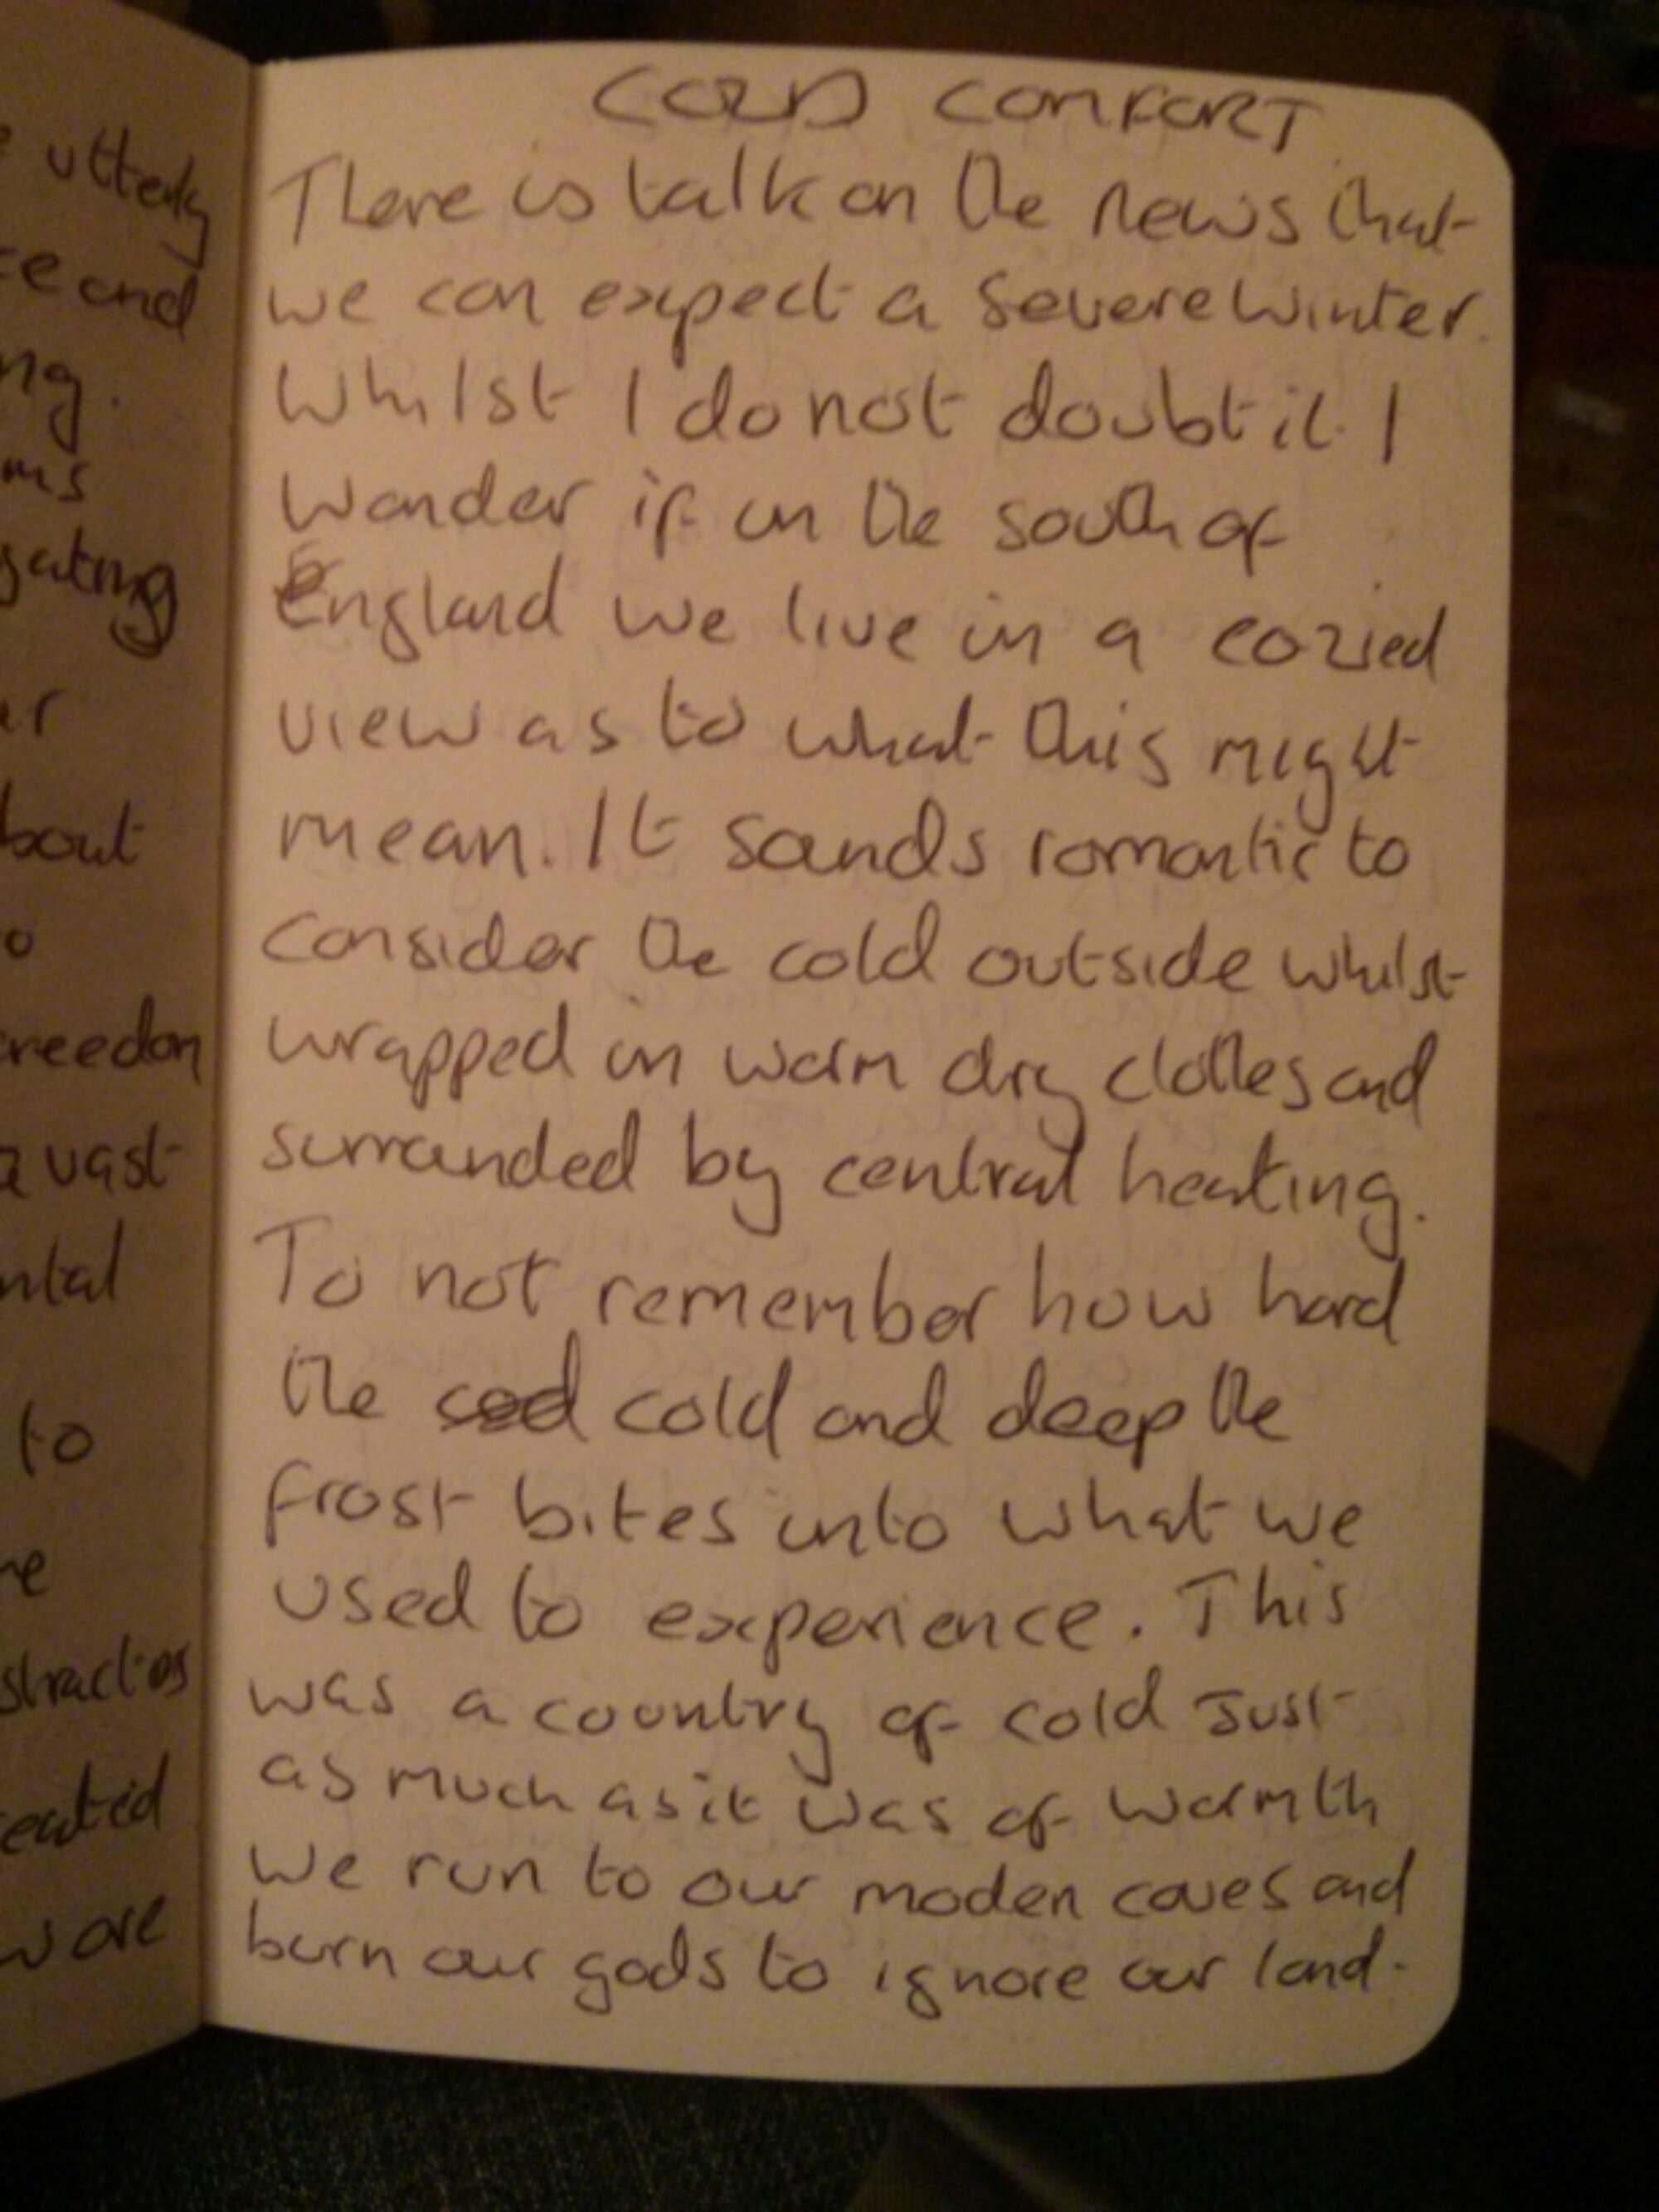 COLD COMFORT
There is talk on the news that
we can expect a severe winter.
Whilst I do not doubt it I
wonder if in the south of
England we live in a cozied
view as to what this might
mean. It sounds romantic to
consider the cold outside whilst
wrapped in warm dry clothes and
surrounded by central heating.
To not remember how hard
the cold and deep the
frost bites into what we
used to experience. This
was a country of cold Just
as much as it was of warmth
We run to our modern caves and
burn our gods to ignore our land.
utterly
and
ng.
ms
gating
er
bout
o
freedom
a vast
ntal
to
re
eated